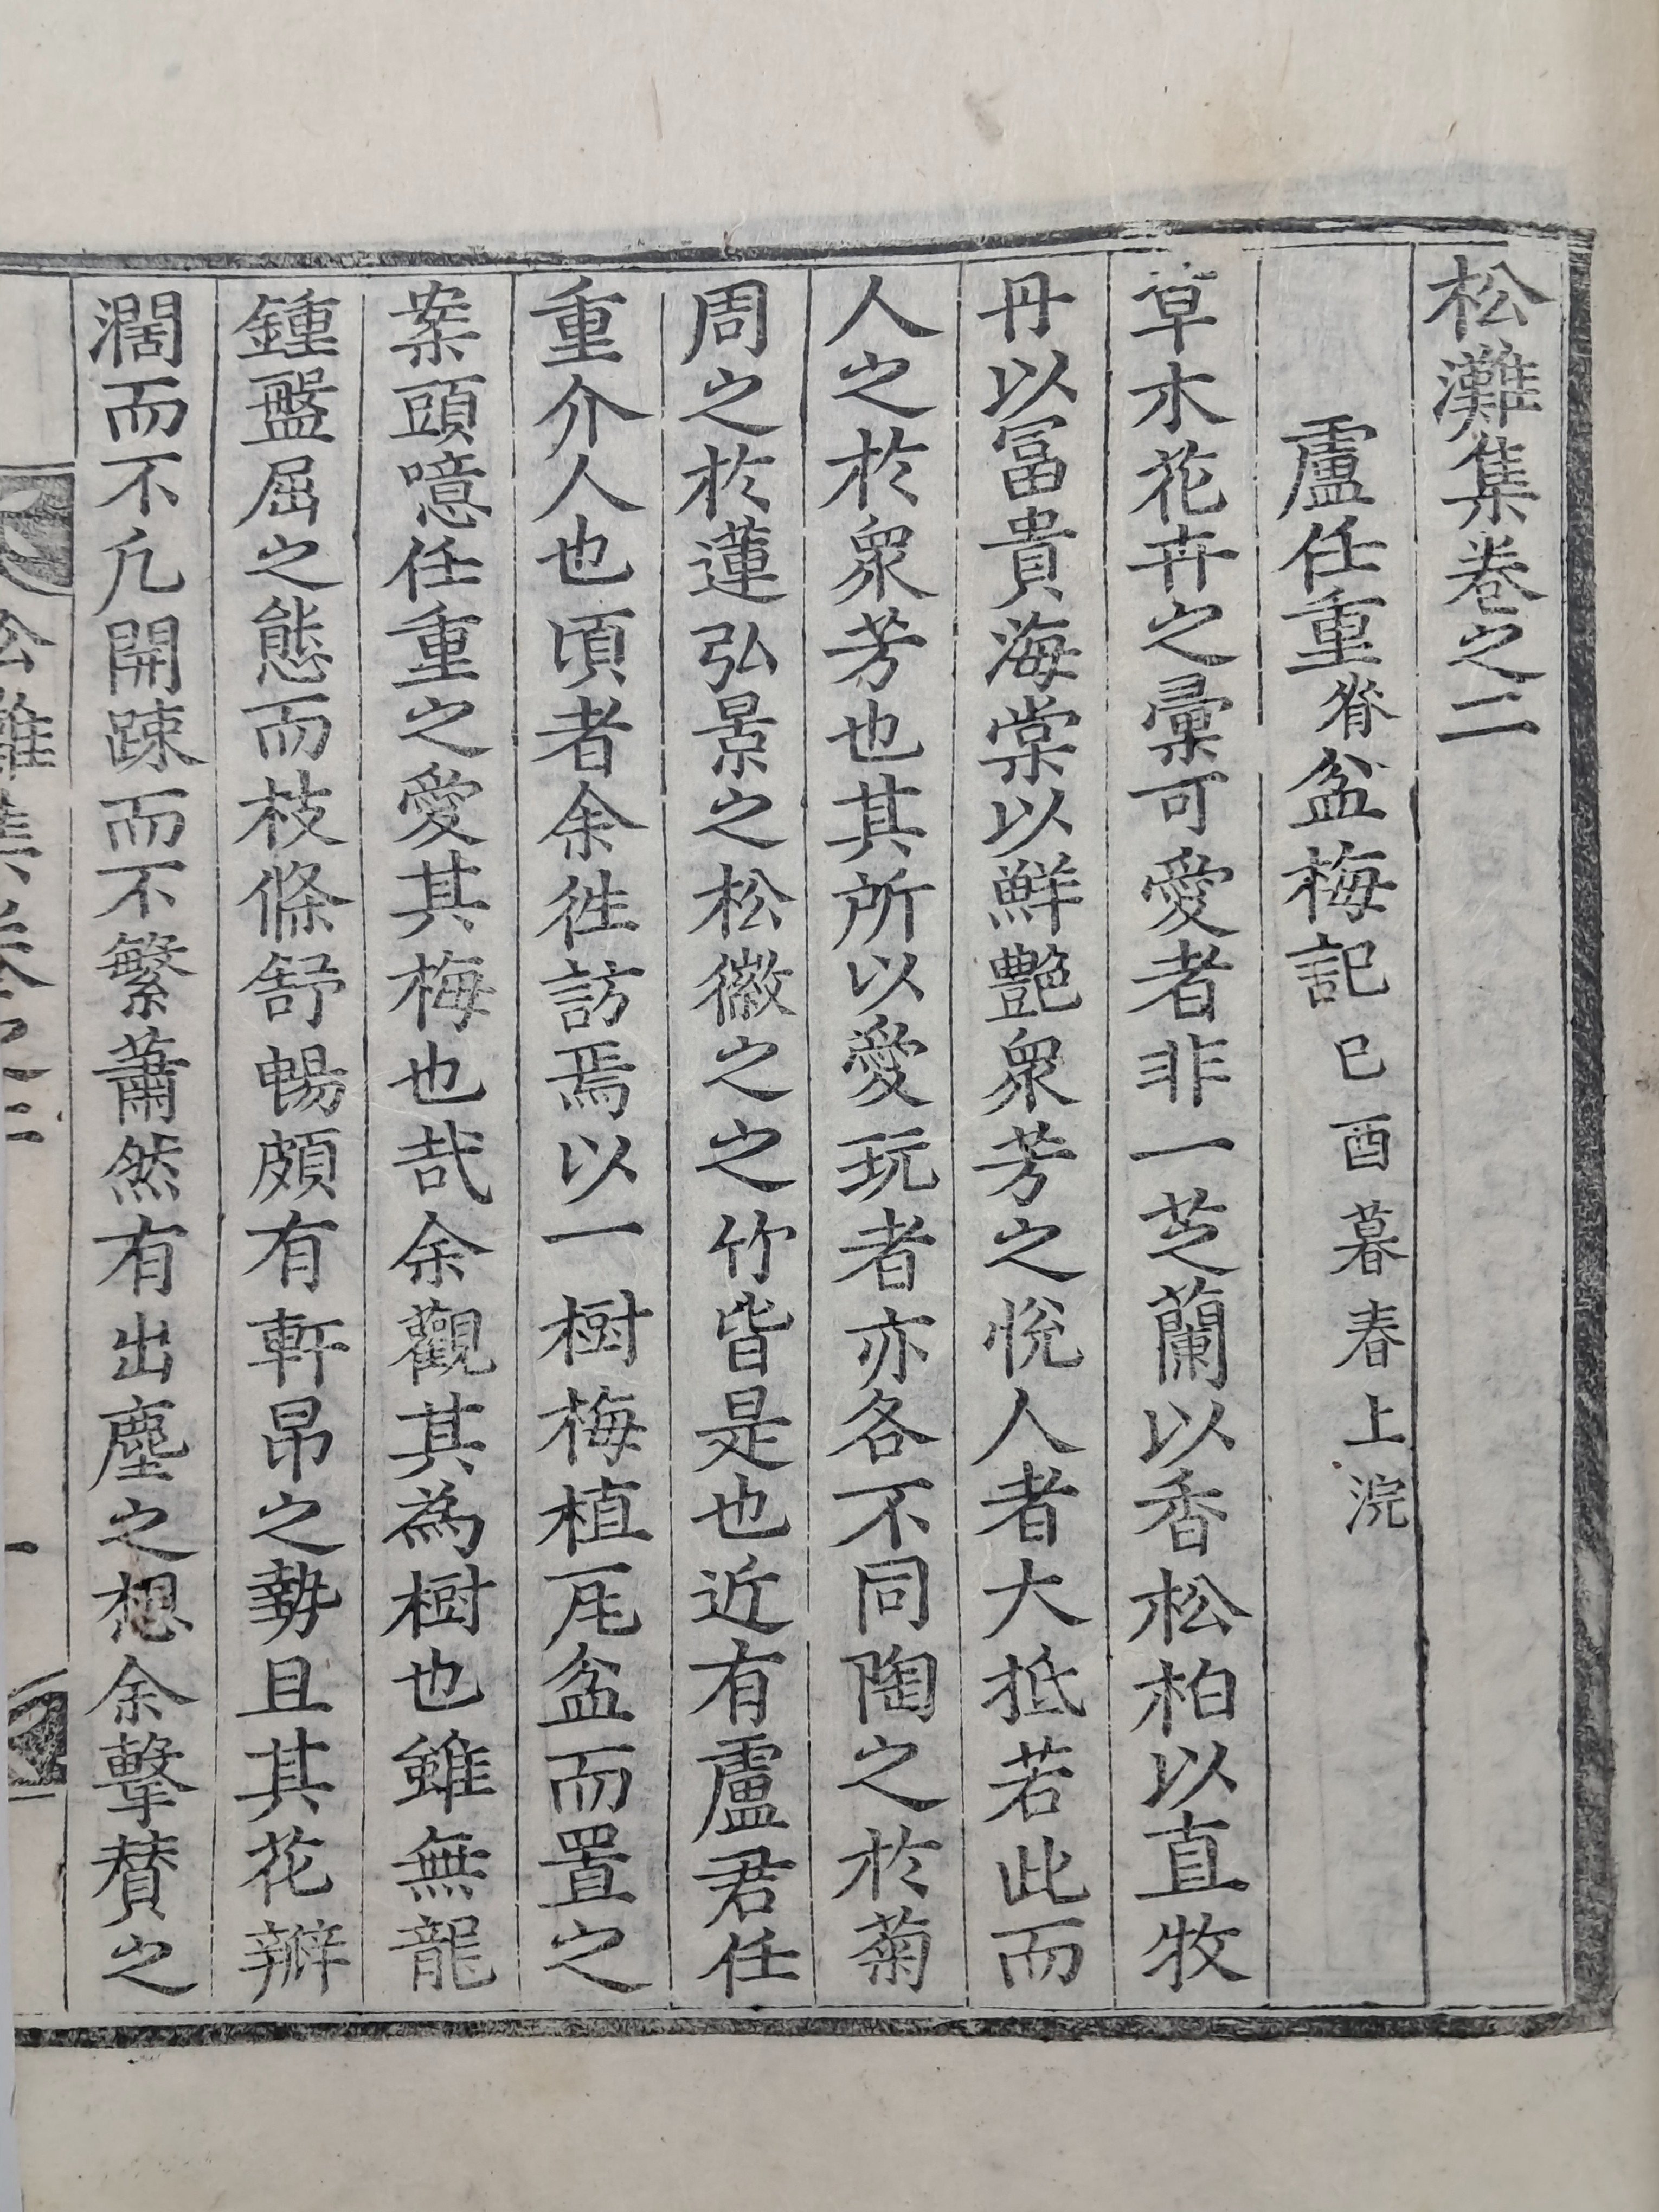 松灘集卷之二
盧任重脊盆梅記 己酉暮春上浣
草木花卉之彙可愛者非一芝蘭以香松柏以直牧
丹以冨貴海棠以鮮艶衆芳之悅人者大抵若此而
人之於衆芳也其所以愛玩者亦各不同陶之於菊
周之於蓮弘景之松徽之之竹皆是也近有盧君任
重介人也頃者余徃訪焉以一樹梅植瓦盆而置之
案頭噫任重之愛其梅也哉余觀其為樹也雖無龍
鍾盤屈之態而枝條舒暢頗有軒昂之勢且其花瓣
濶而不凡開踈而不繁蕭然有出塵之想余擊賛之
松灘集卷之二 一